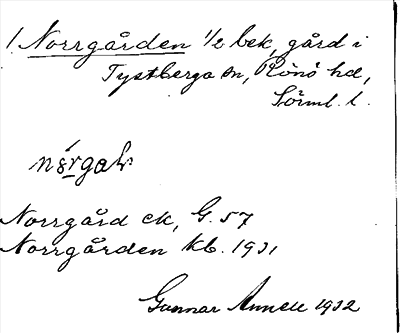 1. Norrgården 1/2 bek, gård i
Tystberga sn, Rönö hd,
Sörml. l.
Norrgård ek, G. 57
Norrgården kb. 1931
Gunnar Annell 1932